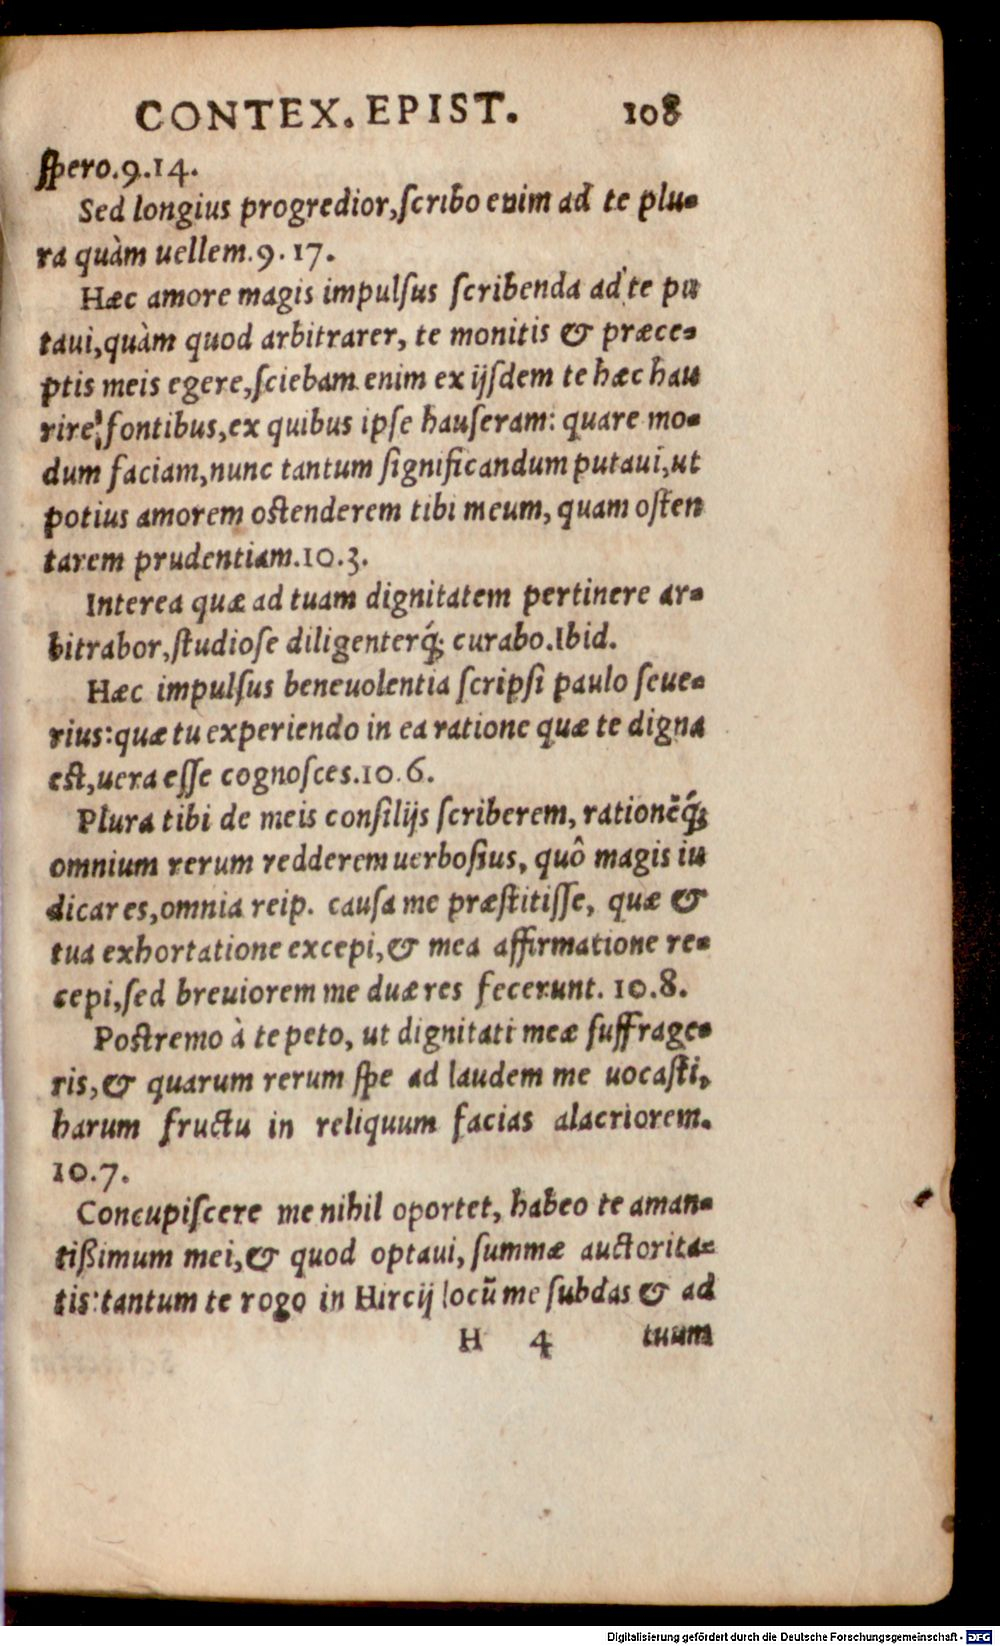 CONTEX. EPIST. 108
ſpero.9.14.
Sed longius progredior,ſcribo enim ad te plu-
ra quàm uellem.9.17.
Hæc amore magis impulſus ſcribenda ad te pu
taui,quàm quod arbitrarer, te monitis & præce-
ptis meis egere,ſciebam enim ex ijſdem te hæc hau
rire fontibus,ex quibus ipſe hauſeram: quare mo-
dum faciam,nunc tantum ſignificandum putaui,ut
potius amorem oſtenderem tibi meum, quam oſten
tarem prudentiam.10.3.
Interea quæ ad tuam dignitatem pertinere ar-
bitrabor,ſtudioſe diligenterq́; curabo.Ibid.
Hæc impulſus beneuolentia ſcripſi paulo ſeue-
rius:quæ tu experiendo in ea ratione quæ te digna
eſt,uera eſſe cognoſces.10.6.
Plura tibi de meis conſilijs ſcriberem, rationẽq́;
omnium rerum redderem uerboſius, quô magis iu
dicares,omnia reip. cauſa me præſtitiſſe, quæ &
tua exhortatione excepi,& mea affirmatione re-
cepi,ſed breuiorem me duæ res fecerunt. 10.8.
Poſtremo à te peto, ut dignitati meæ ſuffrage-
ris,& quarum rerum ſpe ad laudem me uocaſti,
harum fructu in reliquum facias alacriorem.
10.7.
Concupiſcere me nihil oportet, habeo te aman-
tißimum mei,& quod optaui, ſummæ auctorita-
tis:tantum te rogo in Hircij locũ me ſubdas & ad
H 4 tuum
Digitalisierung gefördert durch die Deutsche Forschungsgemeinschaft - DFG